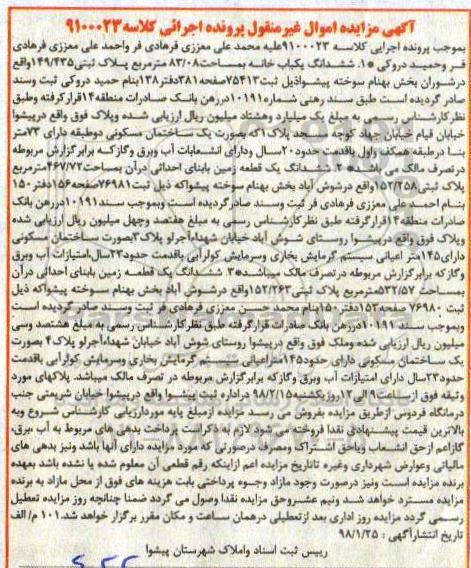 آگهی مزایده اموال غیرمنقول پرونده اجرائی کلاسه ۹۱۰۰۰۲۳
بموجب پرونده اجرایی کلاسه ۹۱۰۰۰۲۳علیه محمد علی معززی فرهادی فر واحمد علی معززی فرهادی
فر وحمید دروکی ۱۰. ششدانگ یکباب خانه بمساحت ۸۳/۰۸ مترمربع پلاک ثبتی۱۴۹/۴۳۵واقع
درشوران بخش بهنام سوخته پیشواذیل ثبت۷۵۴۱۳صفحه۳۸۱دفتر۱۳۸بنام حمید دروکی ثبت وسند
صادر گردیده است طبق سند رهنی شماره۱۰۱۹۱دررهن بانک صادرات منطقه۱۴قرارگرفته وطبق
نظرکارشناس رسمی به مبلغ یک میلیارد وهشتاد میلیون ریال ارزیابی شده وپلاک فوق واقع درپیشوا
خیابان قیام خیابان جهاد کوچه مسجد پلاک۱که بصورت یک ساختمان مسکونی دوطبقه دارای ۷۳متر
بنا درطبقه همکف واول باقدمت حدود۲۰سال ودارای انشعابات آب وبرق وگازکه برابرگزارش مربوطه
درتصرف مالک می باشد۲۰. شدانگ یک قطعه زمین بابنای احداثی درآن بمساحت۴۶۷/۷۲مترمربع
پلاک ثبتی۱۵۲/۲۵۸واقع درشوش آباد بخش بهنام سوخته پیشواکه ذیل ثبت۷۶۹۸۱صفحه۱۵۶دفتر۱۵۰
بنام احمد علی معززی فرهادی فر ثبت وسند صادرگردیده است وبموجب سند۱۰۱۹۱دررهن بانک
صادرات منطقه۱۴قرارگرفته طبق نظرکارشناس رسمی به مبلغ هفتصد وچهل میلیون ریال ارزیابی شده
وپلاک فوق واقع درپیشوا روستای شوش آباد خیابان شهداءآجرلو پلاک۳بصورت ساختمان مسکونی
دارای۱۴۵متر اعیانی سیستم گرمایش بخاری وسرمایش کولرآبی باقدمت حدود۲۳سال،امتیازات آب وبرق
وگازکه برابرگزارش مربوطه درتصرف مالک میباشد۳۰ ششدانگ یک قطعه زمین بابنای احداثی درآن
بمساحت ۵۳۲/۵۷مترمربع پلاک ثبتی۱۵۲/۲۶۳واقع درشوش آباد بخش بهنام سوخته پیشواکه ذیل
ثبت ۷۶۹۸۰ صفحه۱۵۳دفتر۱۵۰بنام محمد حسن معززی فرهادی فر ثبت وسند صادرگردیده است
وبموجب سند ۱۰۱۹۱دررهن بانک صادرات قرارگرفته طبق نظرکارشناس رسمی به مبلغ هشتصد وسی
میلیون ریال ارزیابی شده وملک فوق واقع درپیشوا روستای شوش آباد خیابان شهداءآجرلو پلاک۴ بصورت
یک ساختمان مسکونی دارای حدود۱۴۵متراعیانی سیستم گرمایش بخاری وسرمایش کولرآبی باقدمت
حدود۲۳سال دارای امتیازات آب وبرق وگازکه برابرگزارش مربوطه در تصرف مالک میباشد. پلاکهای مورد
وثیقه فوق ازساعت۹الی۱۲روزیکشنبه۹۸/۲/۱۵ دراداره ثبت پیشوا واقع درپیشوا خیابان شریعتی جنب
درمانگاه فردوس ازطریق مزایده بفروش می رسد مزایده ازمبلغ پایه موردارزیابی کارشناس شروع وبه
بالاترین قیمت پیشنهادی نقدا فروخته می شود لازم به ذکراست پرداخت بدهی های مربوط به آب ،برق،
گازاعم ازحق انشعاب ویاحق اشتراک ومصرف درصورتی که مورد مزایده دارای آنها باشد ونیز بدهی های
مالیاتی وعوارض شهرداری وغیره تاتاریخ مزایده اعم ازاینکه رقم قطعی آن معلوم شده یا نشده باشد بعهده
برنده مزایده است ونیز درصورت وجود مازاد وجوه پرداختی بابت هزینه های فوق از محل مازاد به برنده
مزایده مسترد خواهد شد ونیم عشروحق مزایده نقدا وصول می گردد ضمنا چنانچه روز مزایده تعطیل
رسمی گردد مزایده روز اداری بعد ازتعطیلی درهمان ساعت و مکان مقرر برگزار خواهد شد.۱۰۱ م/ الف
تاریخ انتشارآگهی : ۹۸/۱/۲۵
رییس ثبت اسناد واملاک شهرستان پیشوا